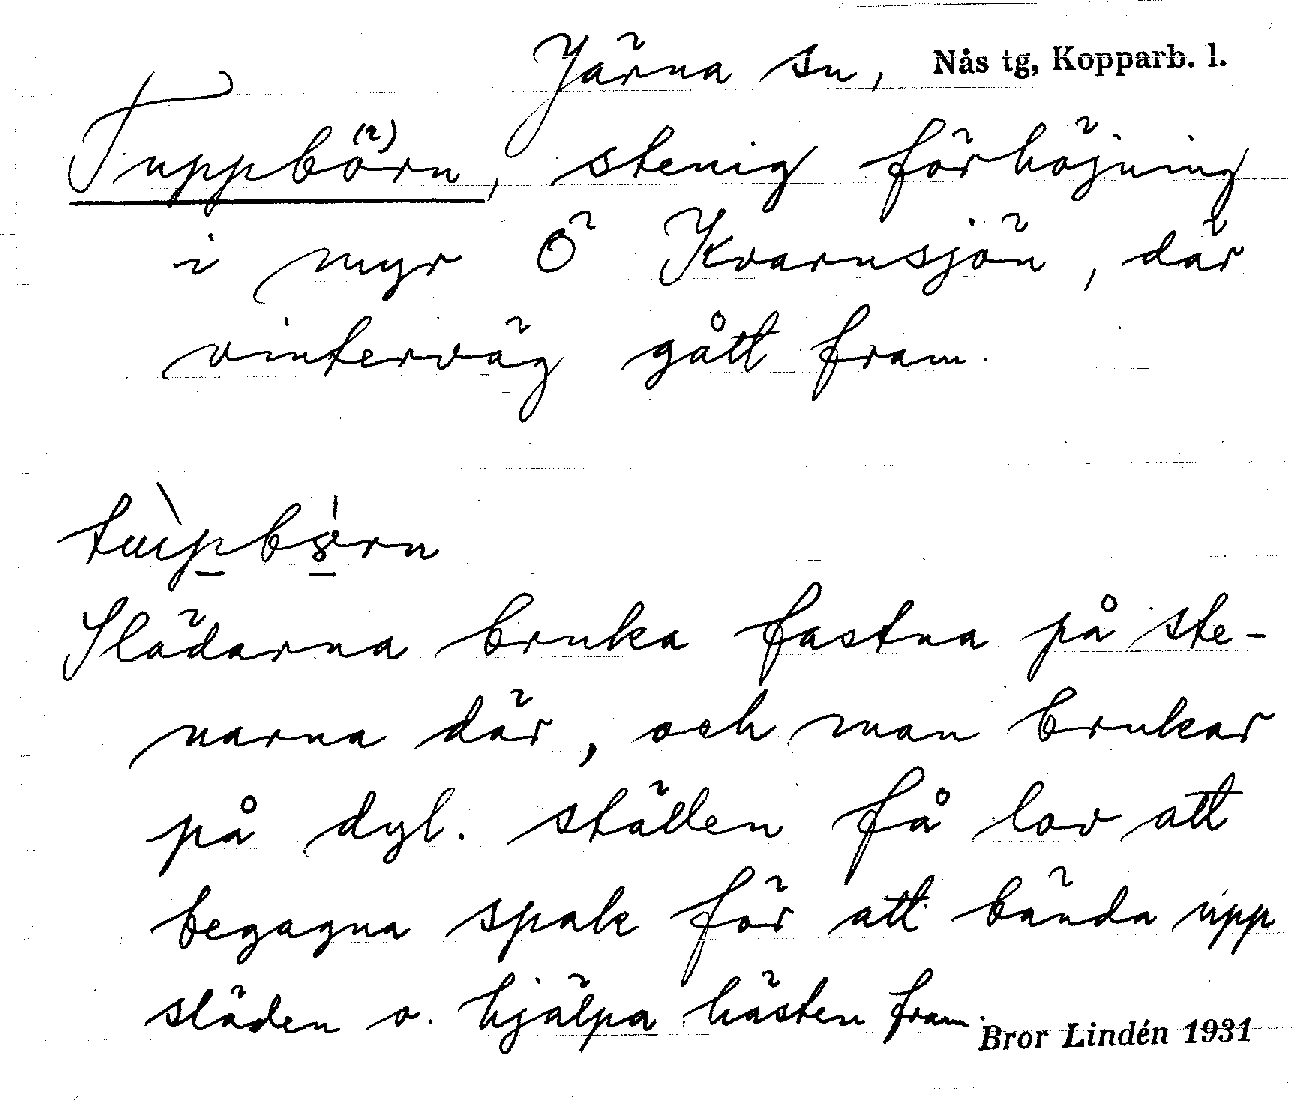 Järna sn, Nås tg, Kopparb. l.
Tuppbö(r)n, stenig förhöjning
i myr Ö Kvarnsjön, där
vinterväg gått fram.
Slädarna bruka fastna på ste-
narna där, och man brukar
på dyl. ställen få lov att
begagna spak för att bända upp
släden o. hjälpa hästen fram.
Bror Lindén 1931